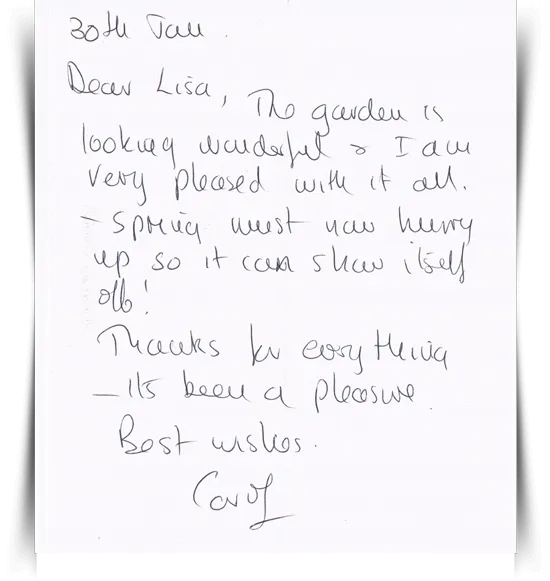 30th Jan.
Dear Lisa, The garden is
looking wonderful & I am
very pleased with it all.
- Spring must now hurry
up so it can show itself
off!
Thanks for everything
- its been a pleasure.
Best wishes.
Carol